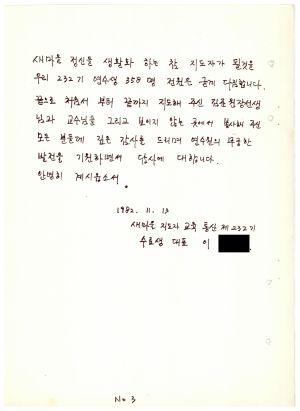 새마을 정신을 생활화 하는 참 지도자가 될것을
우리 232기 연수생 358명 전원은 굳게 다짐합니다.
끝으로 처음서 부터 끝까지 지도해 주신 김준 원장선생
님과 교수님들 그리고 보이지 않는 곳에서 봉사해 주신
모든 분들께 깊은 감사를 드리며 연수원의 무궁한
발전을 기원하면서 답사에 대합니다.
안녕히 계시옵소서.
1982. 11. 13
새마을 지도자 교육 통산 제232기
수료생 대표 이
No 3